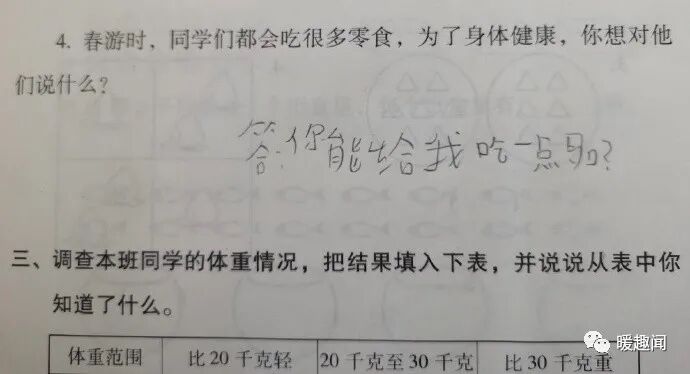 4. 春游时，同学们都会吃很多零食，为了身体健康，你想对他
们说什么？
答：你能给我吃一点吗？
三、调查本班同学的体重情况，把结果填入下表，并说说从表中你
知道了什么。
体重范围 比20千克轻 20千克至30千克 比30千克重
暖趣闻